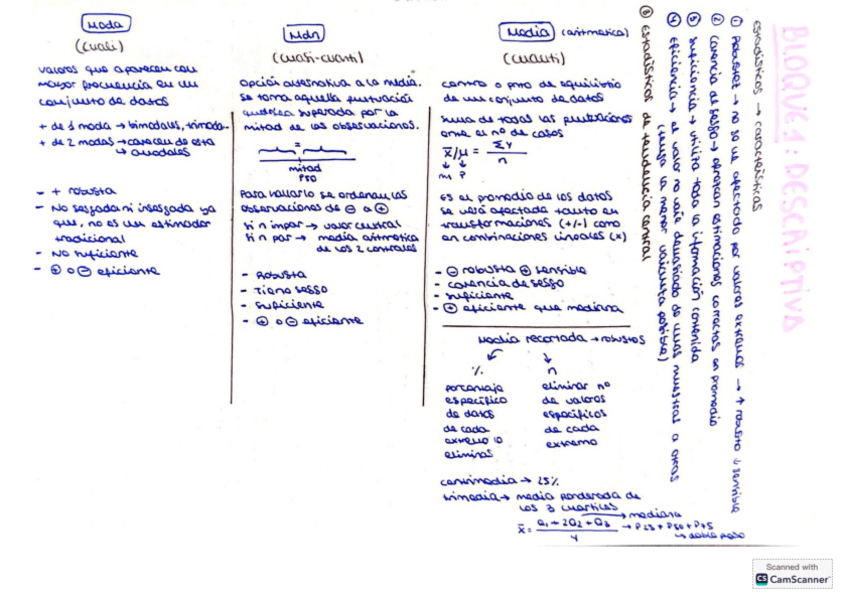 BLOQUE 1: DESCRIPTIVA
estadísticos → características
① Robustez → no se ve afectado por valores extremos → ↑ robusto ↓ sensible
② Carencia de sesgo → ofrezcan estimaciones correctas en promedio
③ Suficiencia → utiliza toda la información contenida
④ Eficiencia → el valor no varíe demasiado de unas muestras a otras
(tenga la menor varianza posible)
⑧ Estadísticos de tendencia central
Moda
(cuali)
valores que aparecen con
mayor frecuencia en un
conjunto de datos
+ de 1 moda → bimodales, trimoda.
+ de 2 modas → carecen de esta
↳ amodales
- + robusta
- No sesgada ni insesgada ya
que, no es un estimador
tradicional
- No suficiente
- ⊕ o ⊖ eficiente
Mdn
(cuasi-cuanti)
opción alternativa a la media.
se toma aquella puntuación
superada por la
mitad de las observaciones.
=
mitad
P50
Para hallarlo se ordenan las
observaciones de ⊖ a ⊕
si n impar → valor central
si n par → media aritmética
de los 2 centrales
- Robusta
- Tiene sesgo
- Suficiente
- ⊕ o ⊖ eficiente
Media (aritmética)
(cuanti)
centro o pto de equilibrio
de un conjunto de datos
suma de todas las puntuaciones
entre el nº de casos
x̄/μ = Σy / n
↓ ↓
m P
es el promedio de los datos
se verá afectada tanto en
transformaciones (+/-) como
en combinaciones lineales (x)
- ⊖ robusta ⊕ sensible
- carencia de sesgo
- suficiente
- ⊕ eficiente que mediana
Media recortada → robustos
↙ ↓
% n
porcentaje eliminar nº
específico de valores
de datos específicos
de cada de cada
extremo a extremo
eliminar
centrimedia → 25%
trimedia → media ponderada de
los 3 cuartiles
→ mediana
x̄ = Q1 + 2Q2 + Q3 / 4 → P25 + P50 + P75
↳ doble peso
Scanned with
CS CamScanner